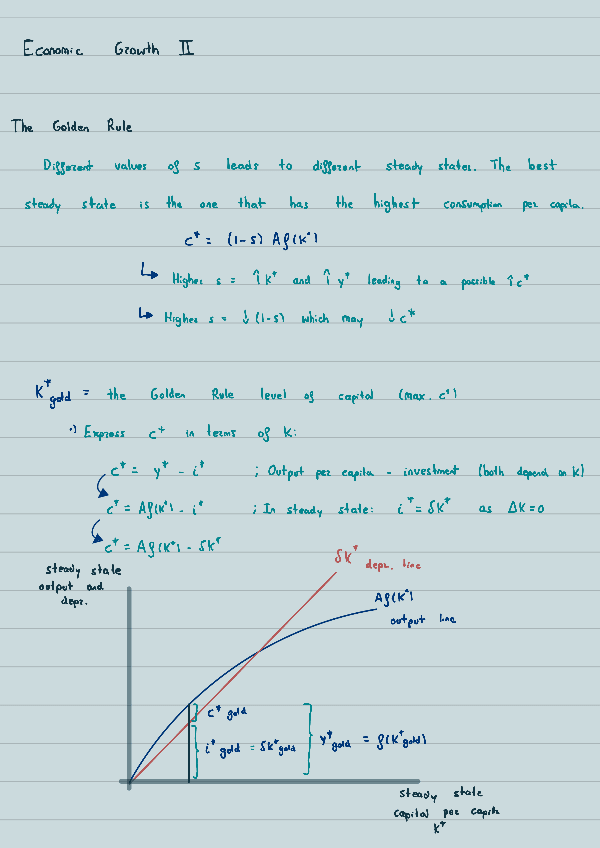 Economic Growth II
The Golden Rule
Different values of s leads to different steady states. The best
steady state is the one that has the highest consumption per capita.
c* = (1-s) Af(K*)
↳ Higher s = ↑K* and ↑y* leading to a possible ↑c*
↳ Higher s = ↓(1-s) which may ↓c*
K*gold = the Golden Rule level of capital (max. c*)
•) Express c* in terms of K:
c* = y* - i* ; Output per capita - investment (both depend on K)
c* = Af(K*) - i* ; In steady state: i* = δK* as ΔK=0
c* = Af(K*) - δK*
steady state
output and
depr.
δK* depr. line
Af(K*)
output line
c* gold
i* gold = δK*gold
y*gold = f(K*gold)
steady state
capital per capita
K*